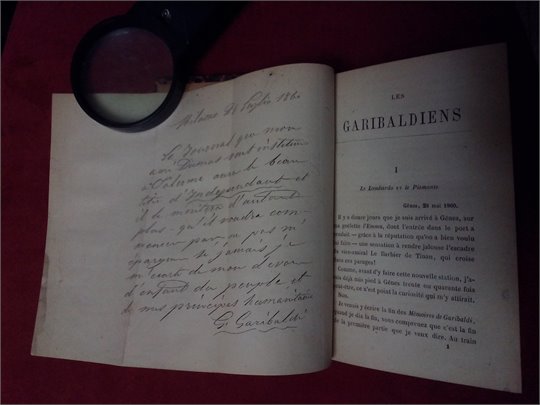 Le Journal que mon
ami Dumas veut instituer
à Palerme aura le beau
titre d'Indépendant et
il le méritera d'autant
plus qu'il voudra com-
mencer par ne pas m'
épargner si jamais je
m'écarte de mon devoir
d'enfant du peuple et
de mes principes humanitaires
G. Garibaldi
LES
GARIBALDIENS
I
Le Lombardo et le Piemonte
Gênes, 28 mai 1860.
Il y a douze jours que je suis arrivé à Gênes, sur
ma goëlette l'Emma, dont l'entrée dans le port a
produit — grâce à la réputation qu'on a bien voulu
me faire — une sensation à rendre jalouse l'escadre
du vice-amiral Le Barbier de Tinan, qui croise
dans ces parages!
Comme, avant d'y faire cette nouvelle station, j'a-
vais déjà mis pied à Gênes trente ou quarante fois
peut-être, ce n'est point la curiosité qui m'y attirait.
Non.
Je venais y écrire la fin des Mémoires de Garibaldi,
quand je dis la fin, vous comprenez que c'est la fin
de la première partie que je veux dire. Au train
1